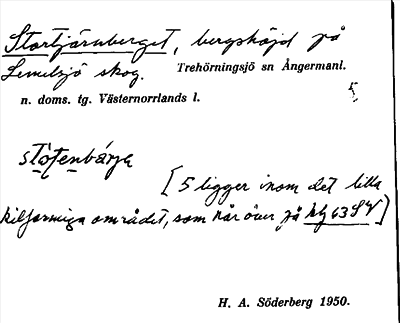 Stortjärnberget, bergshöjd på
Lemelsjö skog. Trehörningsjö sn Ångermanl.
n. doms. tg. Västernorrlands l. 5
[5 ligger inom det lilla
kilformiga området, som når över på
H. A. Söderberg 1950.